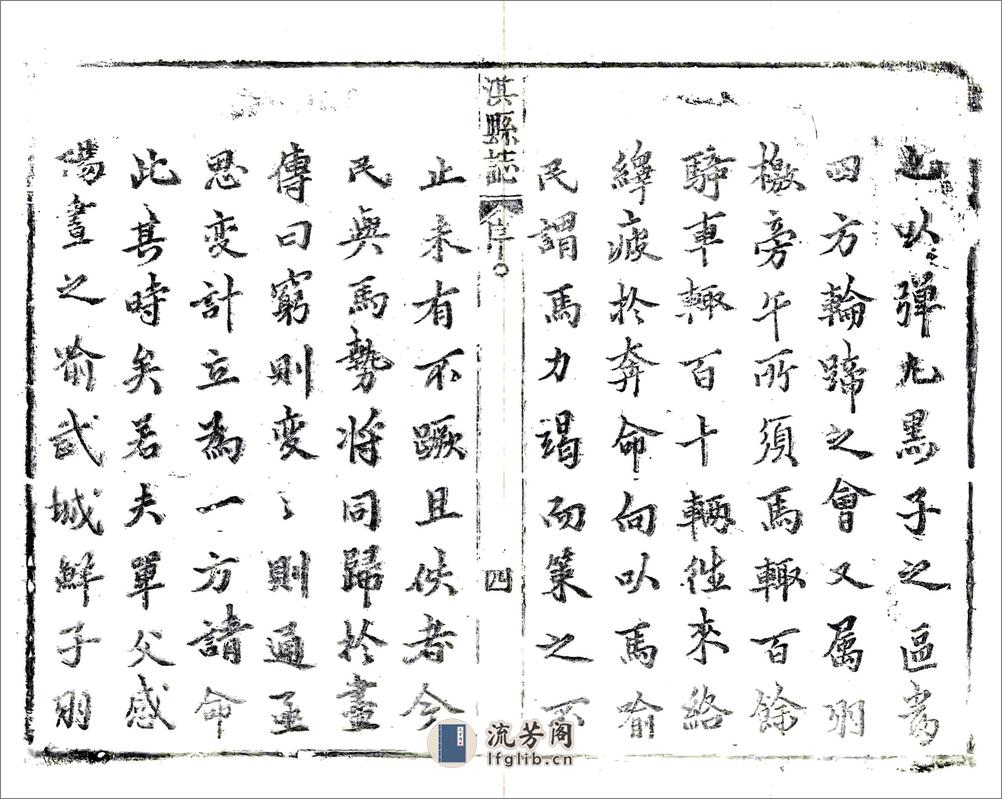 也以弹丸黑子之區當
四方輪蹄之會又属羽
檄旁午所須馬輙百餘
騎車輙百十輛徃來絡
繹疲於奔命向以馬喻
民謂馬力竭而策之不
淇縣誌 序 四
止未有不蹶且佚者今
民與馬勢將同歸於盡
傳曰窮則变〻則通亟
思变計立為一方請命
此其時矣若夫單父感
陽晝之喻武城觧子羽
流芳阁
lfglib.cn